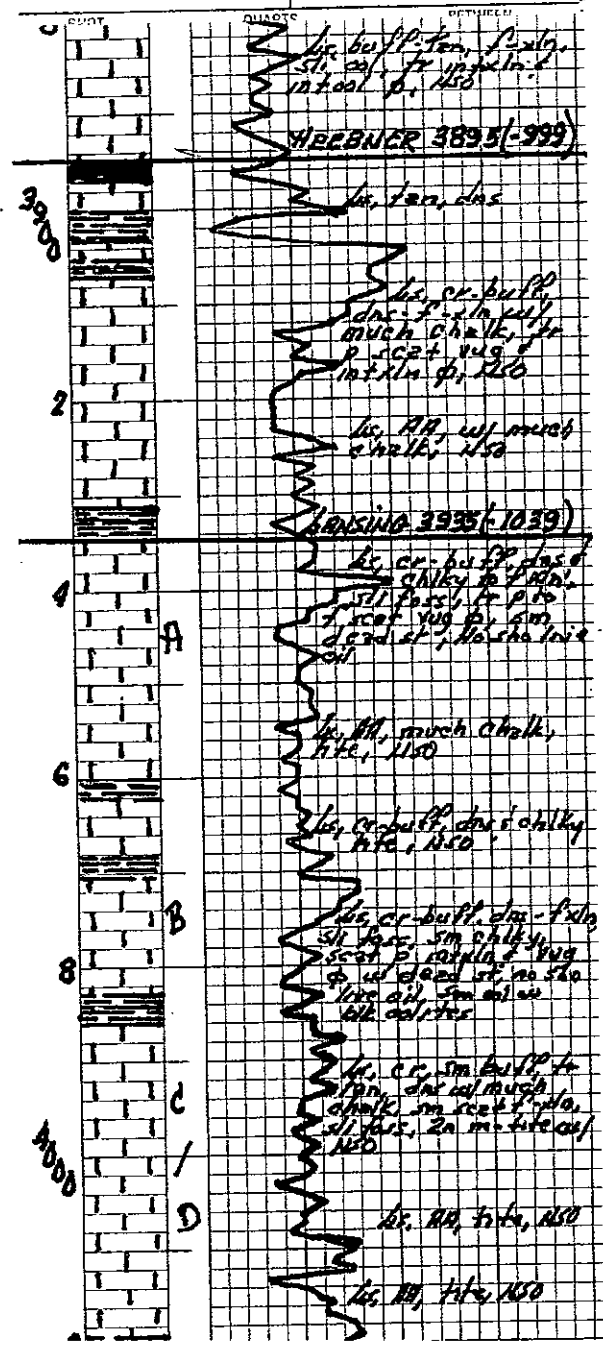 Ls, buff-tan, f-xln,
sli ool, tr intxln &
intool ϕ, NSO
HEEBNER 3895 (-999)
Ls, tan, dns
3900
Ls, cr-buff,
dns-f-xln w/
much chalk, tr
p scat vug &
intxln ϕ, NSO
2
Ls, AA, w/ much
chalk, NSO
LANSING 3935 (-1039)
Ls, cr-buff, dns &
chlky to f xln,
4
sli foss, tr p to
f, scat vug ϕ, sm
A
dead st, No sho live
oil
Ls, AA, much chalk,
tite, NSO
6
Ls, cr-buff, dns & chlky
tite, NSO
Ls, cr-buff, dns-fxln
B
sli foss, sm chlky,
scat p intxln & vug
8
ϕ w/ dead st, no sho
live oil, sm
blk oolites
Ls, cr, sm buff, tr
tan, dns w/ much
C
chalk, sm scat
sli foss,
/
NSO
4000
D
Ls, AA, tite, NSO
Ls, AA, tite, NSO